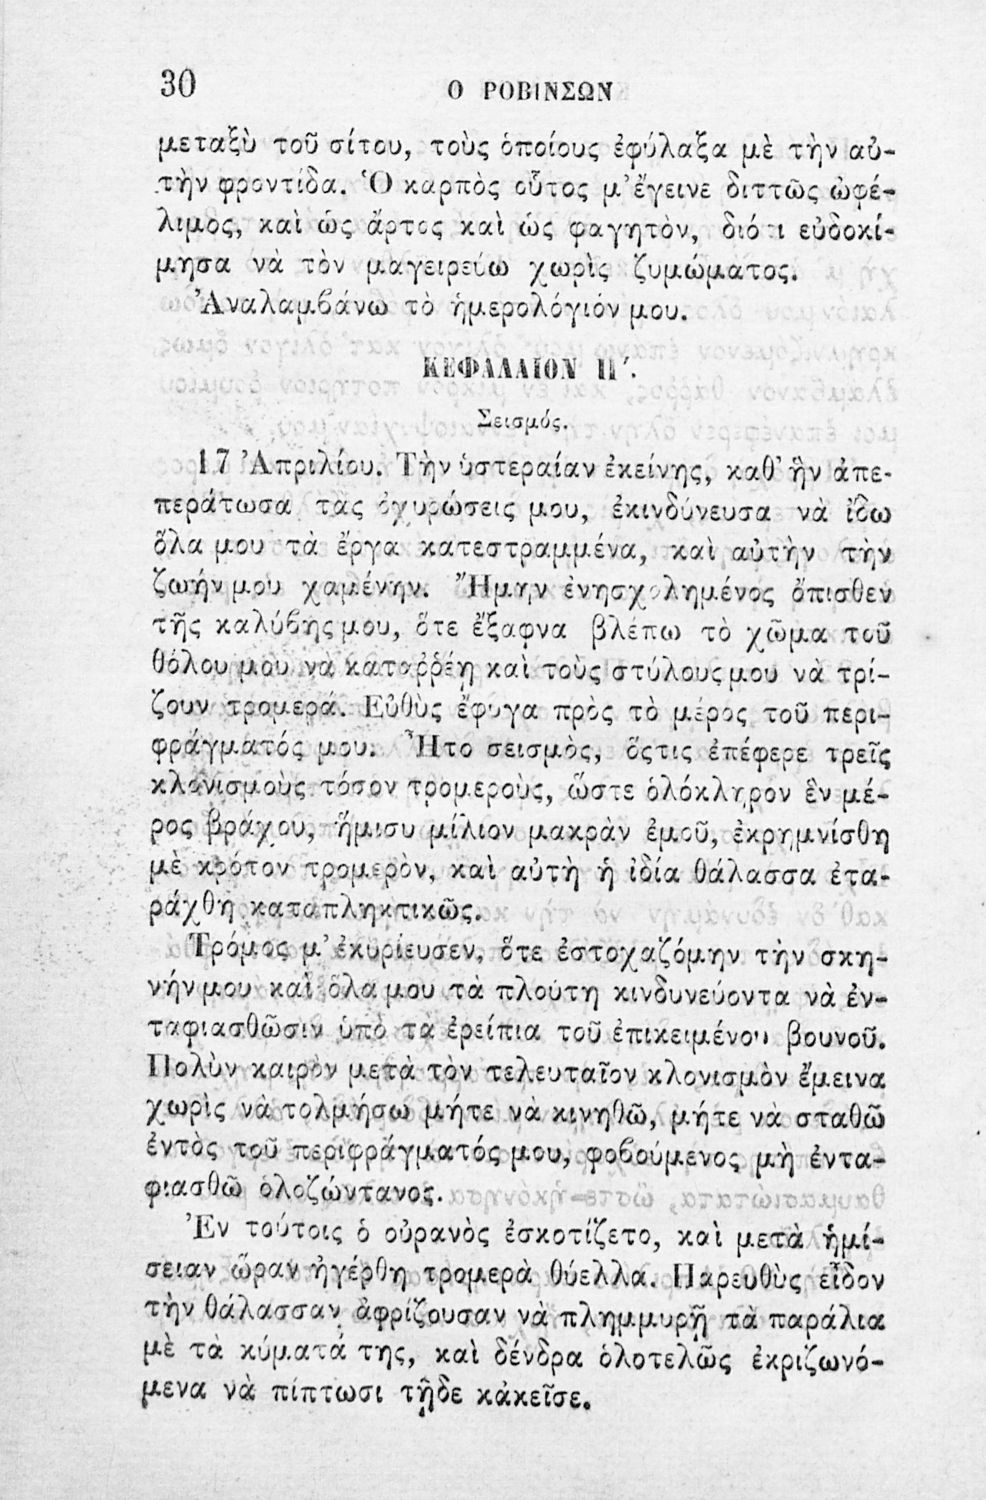 30
Ο ΡΟΒΙΝΣΩΝ
μεταξὺ τοῦ σίτου, τοὺς ὁποίους ἐφύλαξα μὲ τὴν αὐ-
τὴν φροντίδα. Ὁ καρπὸς οὗτος μ’ ἔγεινε διττῶς ὠφέ-
λιμος, καὶ ὡς ἄρτος καὶ ὡς φαγητὸν, διότι εὐδοκί-
μησα νὰ τὸν μαγειρεύω χωρὶς ζυμώματος.
Ἀναλαμβάνω τὸ ἡμερολόγιόν μου.
ΚΕΦΑΛΑΙΟΝ Η΄.
Σεισμός.
17 Ἀπριλίου. Τὴν ὑστεραίαν ἐκείνης, καθ’ ἣν ἀπε-
περάτωσα τὰς ὀχυρώσεις μου, ἐκινδύνευσα νὰ ἴδω
ὅλα μου τὰ ἔργα κατεστραμμένα, καὶ αὐτὴν τὴν
ζωήν μου χαμένην. Ἤμην ἐνησχολημένος ὄπισθεν
τῆς καλύβης μου, ὅτε ἔξαφνα βλέπω τὸ χῶμα τοῦ
θόλου μου νὰ καταῤῥέῃ καὶ τοὺς στύλους μου νὰ τρί-
ζουν τρομερά. Εὐθὺς ἔφυγα πρὸς τὸ μέρος τοῦ περι-
φράγματός μου. Ἦτο σεισμὸς, ὅςτις ἐπέφερε τρεῖς
κλονισμοὺς τόσον τρομεροὺς, ὥστε ὁλόκληρον ἓν μέ-
ρος βράχου, ἥμισυ μίλιον μακρὰν ἐμοῦ, ἐκρημνίσθη
μὲ κρότον τρομερὸν, καὶ αὐτὴ ἡ ἰδία θάλασσα ἐτα-
ράχθη καταπληκτικῶς.
Τρόμος μ’ ἐκυρίευσεν, ὅτε ἐστοχαζόμην τὴν σκη-
νήν μου καὶ ὅλα μου τὰ πλούτη κινδυνεύοντα νὰ ἐν-
ταφιασθῶσιν ὑπὸ τὰ ἐρείπια τοῦ ἐπικειμένου βουνοῦ.
Πολὺν καιρὸν μετὰ τὸν τελευταῖον κλονισμὸν ἔμεινα
χωρὶς νὰ τολμήσω μήτε νὰ κινηθῶ, μήτε νὰ σταθῶ
ἐντὸς τοῦ περιφράγματός μου, φοβούμενος μὴ ἐντα-
φιασθῶ ὁλοζώντανος.
Ἐν τούτοις ὁ οὐρανὸς ἐσκοτίζετο, καὶ μετὰ ἡμί-
σειαν ὥραν ἠγέρθη τρομερὰ θύελλα. Παρευθὺς εἶδον
τὴν θάλασσαν ἀφρίζουσαν νὰ πλημμυρῇ τὰ παράλια
μὲ τὰ κύματά της, καὶ δένδρα ὁλοτελῶς ἐκριζωνό-
μενα νὰ πίπτωσι τῇδε κἀκεῖσε.